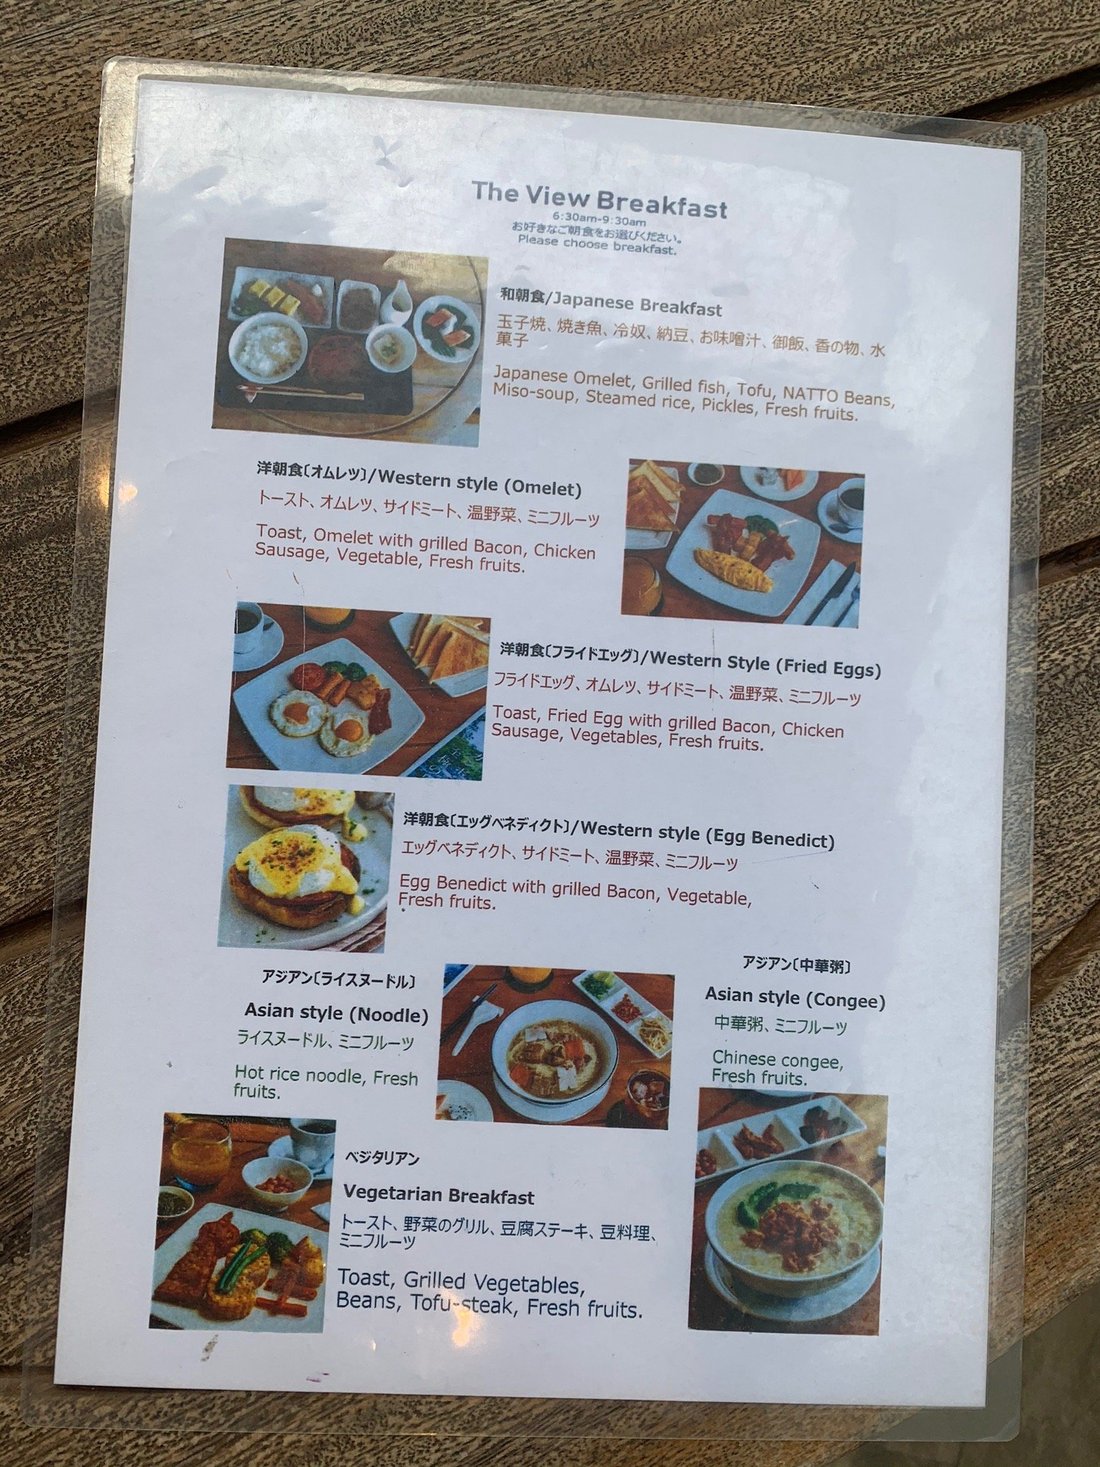 The View Breakfast
6:30am-9:30am
お好きなご朝食をお選びください。
Please choose breakfast.
和朝食/Japanese Breakfast
玉子焼、焼き魚、冷奴、納豆、お味噌汁、御飯、香の物、水
菓子
Japanese Omelet, Grilled fish, Tofu, NATTO Beans,
Miso-soup, Steamed rice, Pickles, Fresh fruits.
洋朝食〔オムレツ〕/Western style (Omelet)
トースト、オムレツ、サイドミート、温野菜、ミニフルーツ
Toast, Omelet with grilled Bacon, Chicken
Sausage, Vegetable, Fresh fruits.
洋朝食〔フライドエッグ〕/Western Style (Fried Eggs)
フライドエッグ、オムレツ、サイドミート、温野菜、ミニフルーツ
Toast, Fried Egg with grilled Bacon, Chicken
Sausage, Vegetables, Fresh fruits.
洋朝食〔エッグベネディクト〕/Western style (Egg Benedict)
エッグベネディクト、サイドミート、温野菜、ミニフルーツ
Egg Benedict with grilled Bacon, Vegetable,
Fresh fruits.
アジアン〔ライスヌードル〕
Asian style (Noodle)
ライスヌードル、ミニフルーツ
Hot rice noodle, Fresh
fruits.
アジアン〔中華粥〕
Asian style (Congee)
中華粥、ミニフルーツ
Chinese congee,
Fresh fruits.
ベジタリアン
Vegetarian Breakfast
トースト、野菜のグリル、豆腐ステーキ、豆料理、
ミニフルーツ
Toast, Grilled Vegetables,
Beans, Tofu-steak, Fresh fruits.